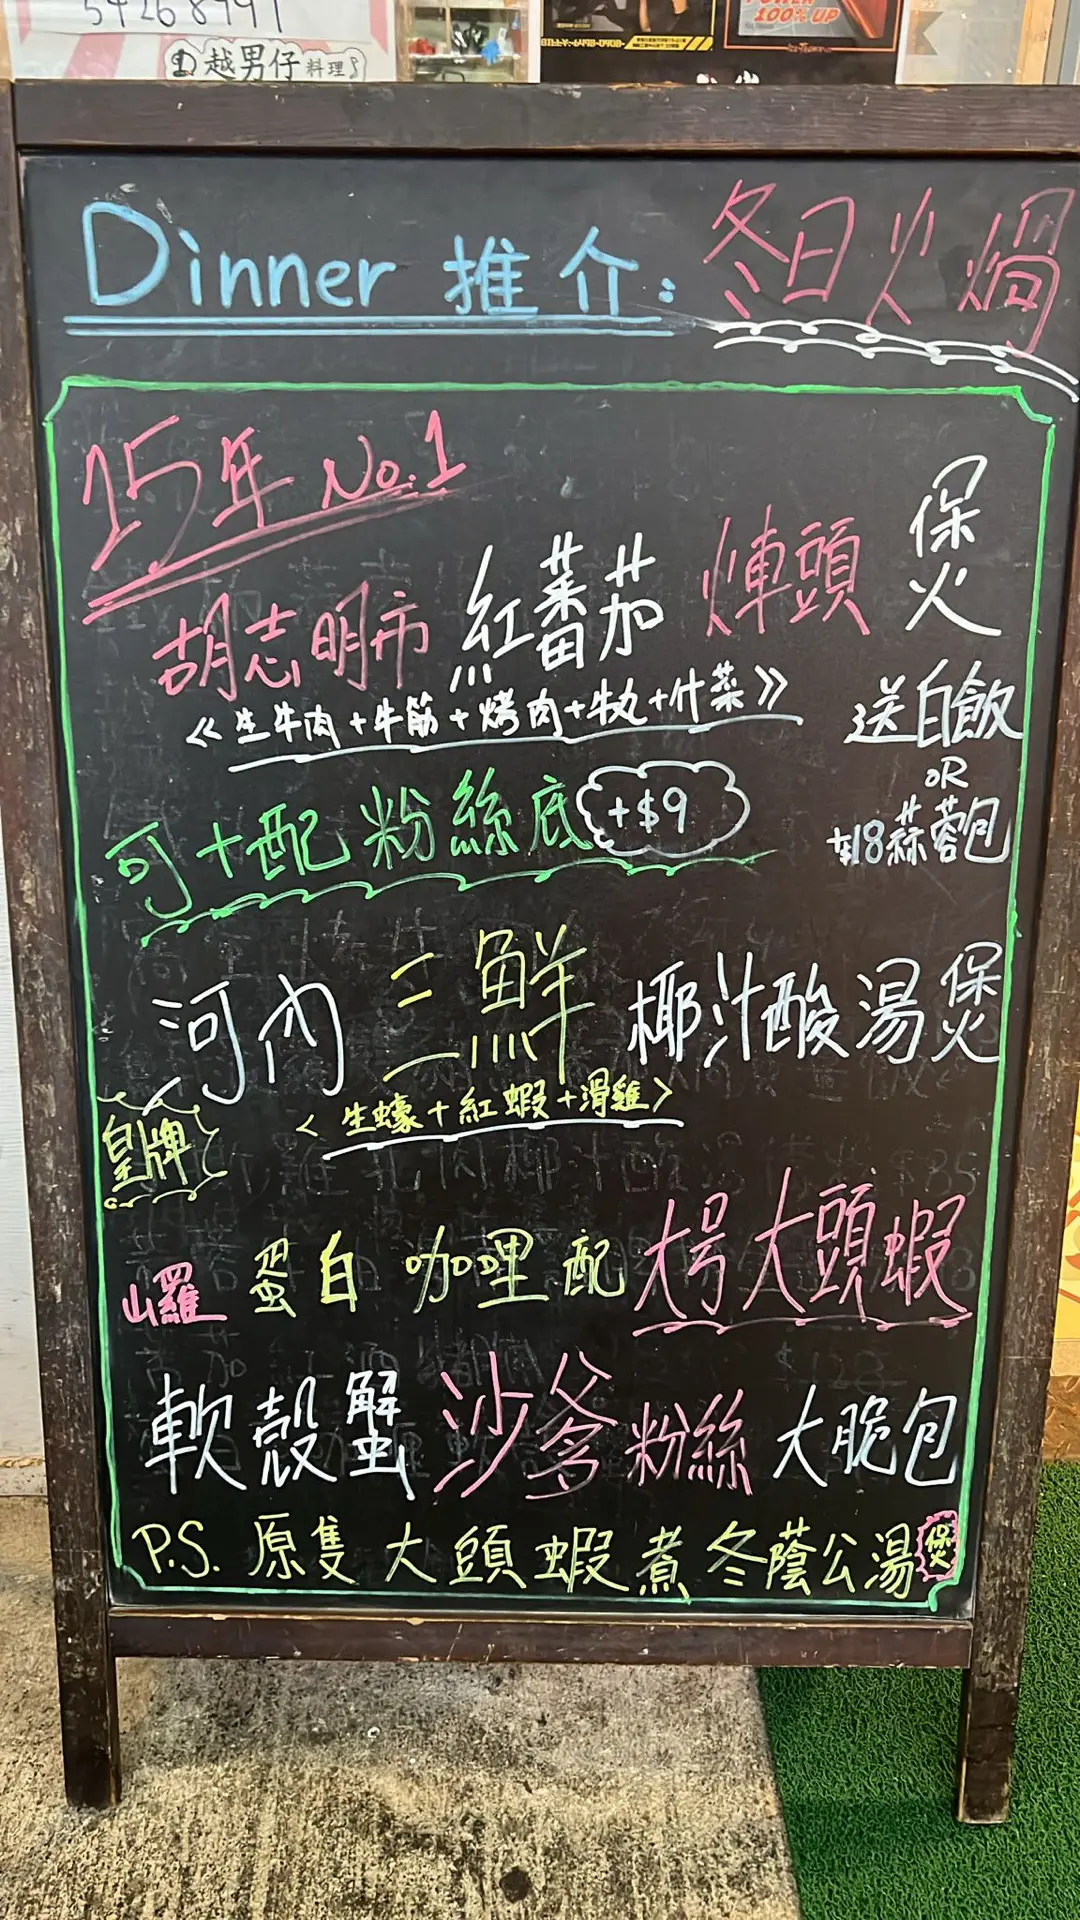 越男仔料理
POWER
100% UP
Dinner 推介: 冬日火焗
15年 No.1
胡志明市 紅蕃茄 煉頭 煲
《生牛肉+牛筋+烤肉+牛丸+什菜》
送白飯
OR
+$18蒜蓉包
可+配粉絲底 +$9
河內 三鮮 椰汁酸湯煲
<生蠔+紅蝦+滑雞>
皇牌
山羅 蛋白咖哩配 大号大頭蝦
軟殼蟹 沙爹粉絲 大脆包
P.S. 原隻大頭蝦煮冬蔭公湯煲